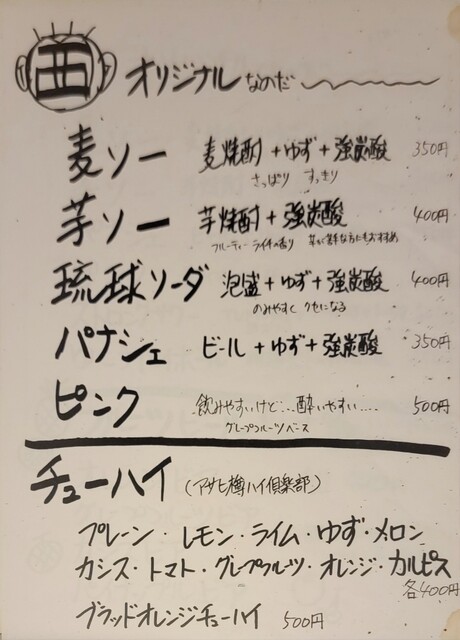 西 オリジナルなのだ
麦ソー 麦焼酎+ゆず+強炭酸 350円
さっぱり すっきり
芋ソー 芋焼酎+強炭酸 400円
フルーティー ライチの香り 芋が苦手な方にもおすすめ
琉球ソーダ 泡盛+ゆず+強炭酸 400円
のみやすく クセになる
パナシェ ビール+ゆず+強炭酸 350円
ピンク 飲みやすいけど...酔いやすい.... 500円
グレープフルーツベース
チューハイ (アサヒ樽ハイ倶楽部)
プレーン・レモン・ライム・ゆず・メロン
カシス・トマト・グレープフルーツ・オレンジ・カルピス
各400円
ブラッドオレンジチューハイ 500円